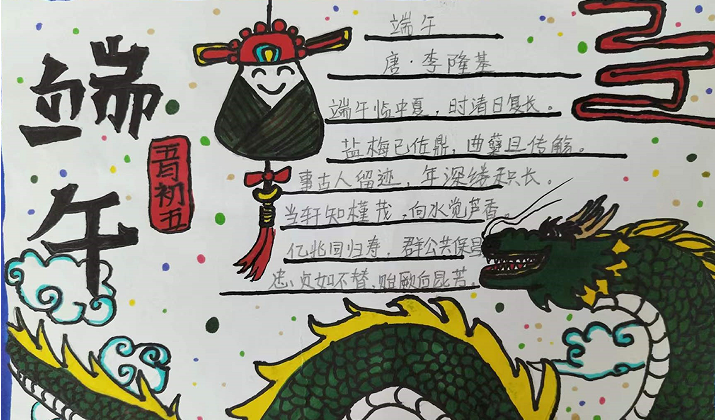 端午
五月初五
端午
唐·李隆基
端午临中夏，时清日复长。
盐梅已佐鼎，曲糵且传觞。
事古人留迹，年深缘积长。
当轩知槿茂，向水觉芦香。
亿兆同归寿，群公共保
忠贞如不替，贻厥向昆苦。